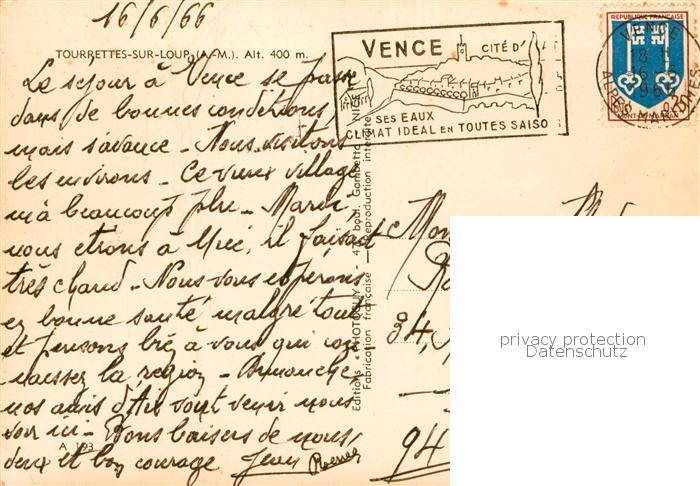 16/6/66
TOURRETTES-SUR-LOUP (A.-M.). Alt. 400 m.
Le séjour à Vence se passe
dans de bonnes conditions,
mais s'avance - Nous visitons
les environs - Ce vieux village
m'a beaucoup plu - Mardi
nous étions à Nice, il faisait
très chaud - Nous vous espérons
en bonne santé malgré tout
et pensons bien à vous qui con
naissez la région - Dimanche,
nos amis d'Aix vont venir nous
voir ici - Bons baisers de nous
deux et bon courage Jean
A 193
VENCE CITÉ D'
SES EAUX
CLIMAT IDEAL EN TOUTES SAISO
REPUBLIQUE FRANÇAISE
MONT-DE-MARSAN
VENCE
ALPES MARITIMES
Editions "PHOTOGUY" - boul. Gambetta NICE
Fabrication française - Reproduction interdite
Mon
34,
94
privacy protection
Datenschutz